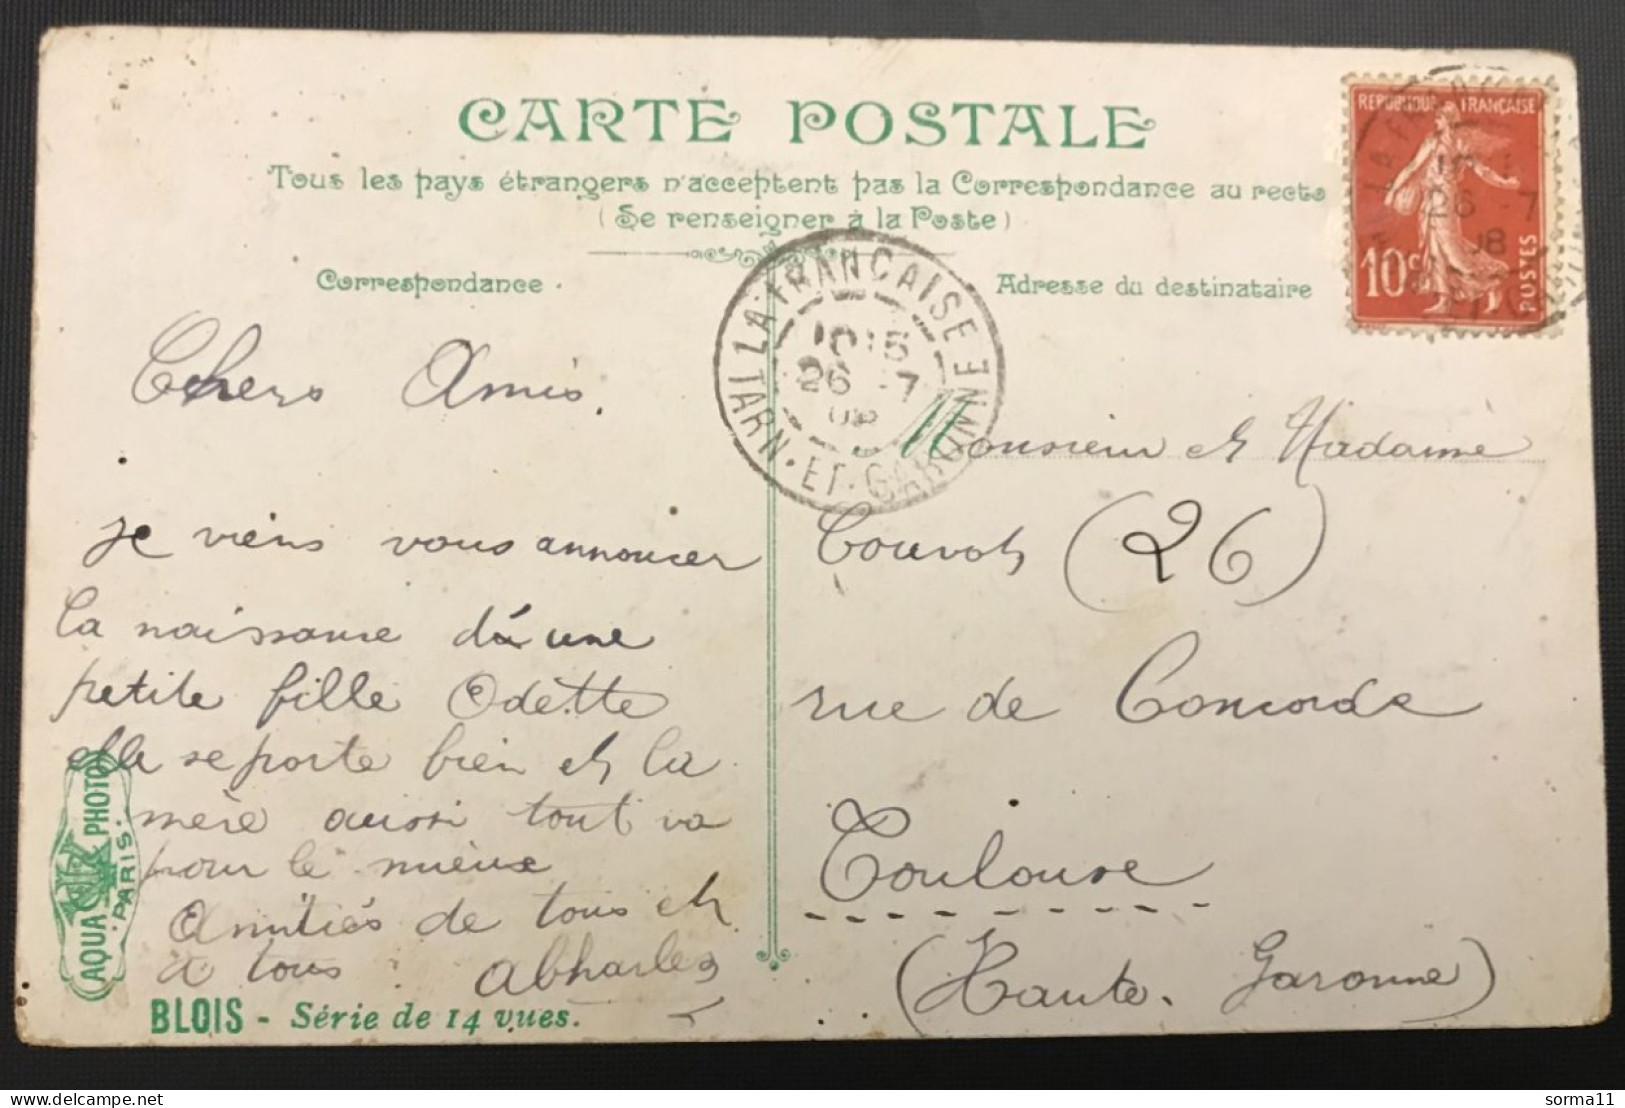 CARTE POSTALE
Tous les pays étrangers n'acceptent pas la Correspondance au recto
(Se renseigner à la Poste)
Correspondance
Adresse du destinataire
REPUBLIQUE FRANÇAISE
10c
POSTES
26 -7
08
LA FRANÇAISE
TARN-ET-GARONNE
26 -7
Chers Amis.
je viens vous annoncer
la naissance d'une
petite fille Odette
elle se porte bien et la
mère aussi tout va
pour le mieux
Amitiés de tous et
à tous
Monsieur et Madame
(26)
rue de Concorde
Toulouse
(Haute. Garonne)
AQUA PHOTO
PARIS
BLOIS - Série de 14 vues.
sorma11